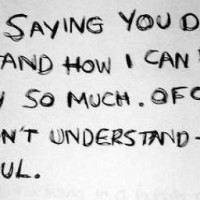 SAYING YOU D
TAND HOW I CAN
SO MUCH. OFC
N'T UNDERSTAND-
UL.